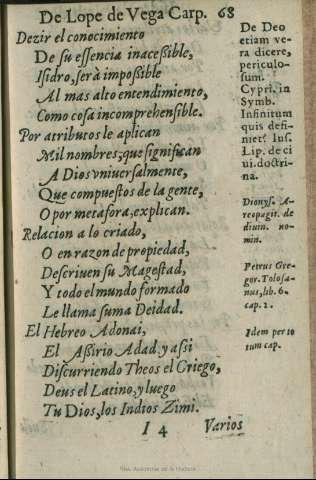 De Lope de Vega Carp. 68
Dezir el conocimiento
De su essencia inacessible,
Isidro, serà impossible
Al mas alto entendimiento,
Como cosa incomprehensible.
Por atributos le aplican
Mil nombres, que significan
A Dios vniuersalmente,
Que compuestos de la gente,
O por metafora, explican.
Relacion a lo criado,
O en razon de propiedad,
Descriuen su Magestad,
Y todo el mundo formado
Le llama suma Deidad.
El Hebreo Adonai,
El Assirio Adad, y assi
Discurriendo Theos el Griego,
Deus el Latino, y luego
Tu Dios, los Indios Zimi.
I 4 Varios
De Deo
etiam ve-
ra dicere,
periculo-
sum.
Cypri. in
Symb.
Infinitum
quis defi-
niet? Ius.
Lip. de ci
ui. doctri-
na.
Dionys. A-
reopagit. de
diuin. no-
min.
Petrus Gre-
gor. Tolosa-
nus, lib. 6.
cap. 2.
Idem per to
tum cap.
Real Academia de la Historia